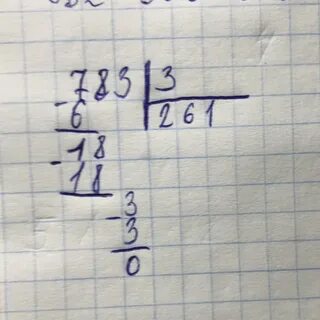 783 3
-6 261
-18
18
-3
3
0